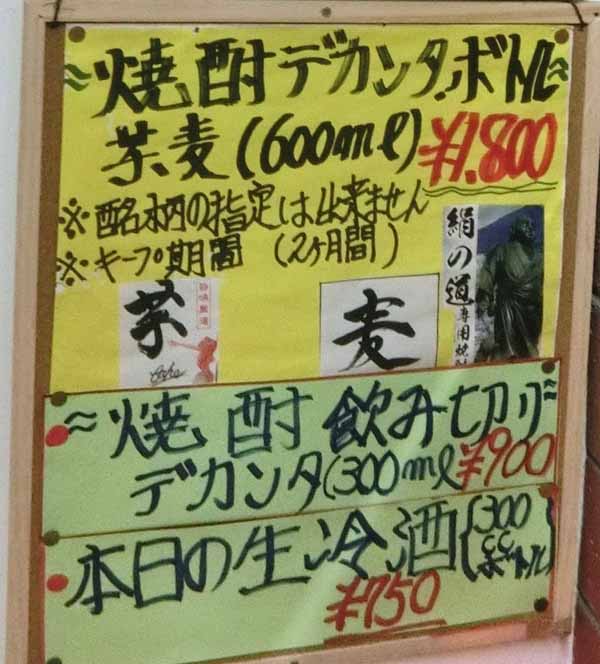 ~焼酎デカンタ.ボトル~
芋.麦(600ml)¥1.800
※酩柄の指定は出来ません
※キープ期間 (2ヶ月間)
芋
麦
絹の道
専用焼酎
~焼酎飲み切り~
デカンタ(300ml¥900
本日の生冷酒{300ccボトル}
¥750